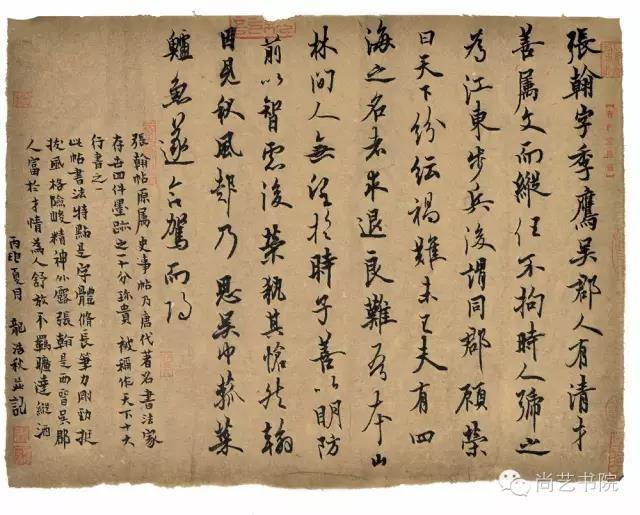 張翰字季鷹吳郡人有清才
善属文而縱任不拘時人號之
為江東步兵後謂同郡顧榮
曰天下紛紜禍難未已夫有四
海之名者求退良難吾本山
林間人無望於時子善以明防
前以智慮後榮執其愴然翰
因見秋風起乃思吳中菰菜
鱸魚遂命駕而歸
張翰帖原属史事帖乃唐代著名書法家
存世四件墨跡之一十分珍貴被稱作天下十大
行書之一
此帖書法特點是字體脩長筆力剛勁挺
拔風格險峻精神外露張翰是西晉吳郡
人富於才情為人舒放不羈曠達縱酒
夏月 龍浩秋並記
尚艺书院